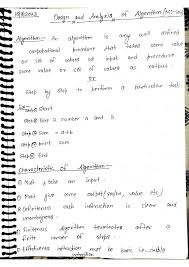 Design and Analysis of Algorithm
Algorithm:- An algorithm is any well defined
computational procedure that takes some value
or set of values as input and produce
some value or set of values as output
or
Step by step to perform a particular task.
Ex:-
Step① Start
Step② take a number a and b.
Step③ Sum = a+b
Step④ print sum
Step⑤ End
Characteristic of Algorithm-
Must take an input.
Must give some output (value, value etc)
Definiteness each instruction is clear and
unambiguous.
Finiteness Algorithm terminates after a
finite number of steps.
Effectiveness instruction must be basic i.e.
instruction.